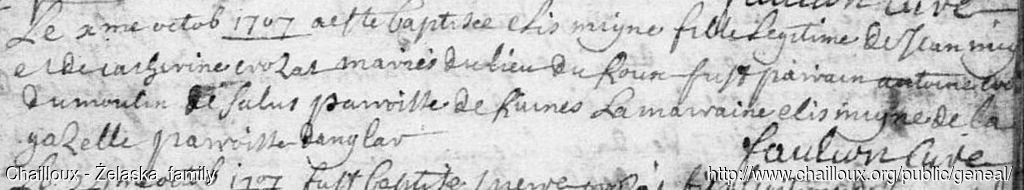 faulion Curé
Le xme octob 1707 a este baptisee elis migne fille legitime de Jean mig
et de catherine crozat mariés du lieu du Roux fust parrain antoine cro
du moulin de salus parroisse de Ruines La marraine elis migne de la
gazelle parroisse danglar
faulion Curé
octob 1707 fust baptise pierre
Chailloux - Żelaska family
http://www.chailloux.org/public/geneal/